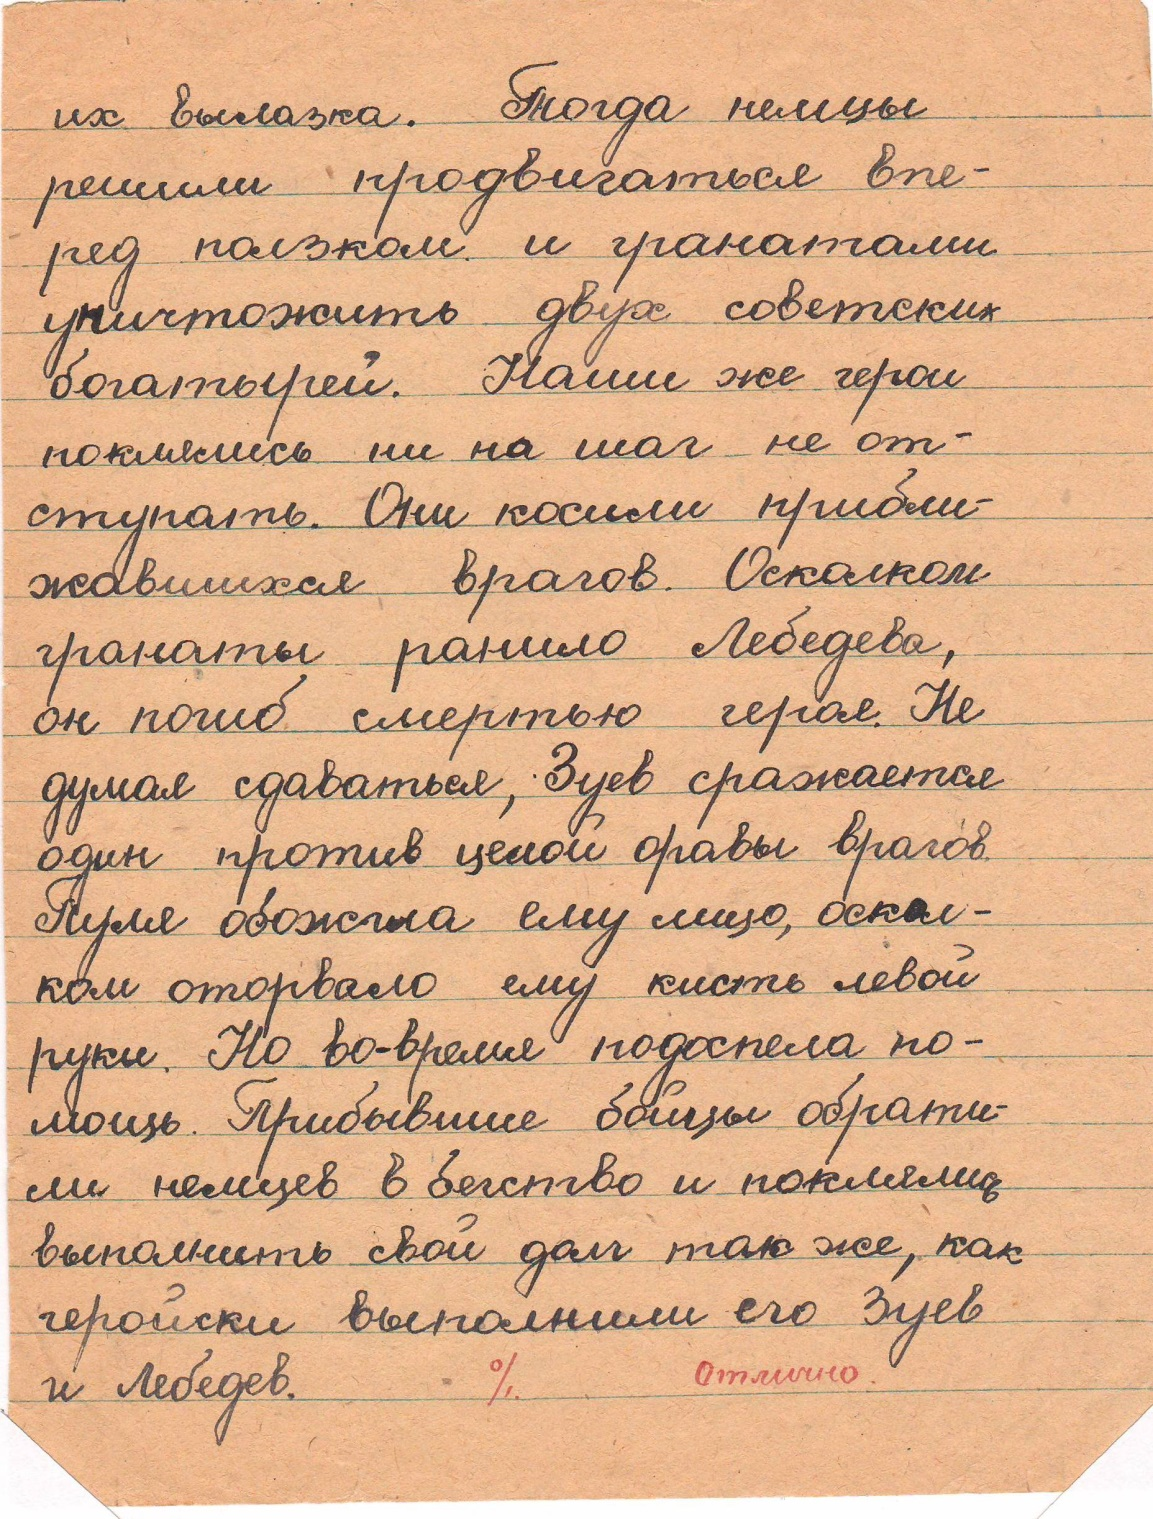 их вылазка. Тогда немцы
решили продвигаться впе-
ред ползком и гранатами
уничтожить двух советских
богатырей. Наши же герои
поклялись ни на шаг не от-
ступать. Они косили прибли-
жавшихся врагов. Осколком
гранаты ранило Лебедева,
он погиб смертью героя. Не
думая сдаваться, Зуев сражается
один против целой оравы врагов.
Пуля обожгла ему лицо, оскол-
ком оторвало ему кисть левой
руки. Но во-время подоспела по-
мощь. Прибывшие бойцы обрати-
ли немцев в бегство и поклялись
выполнить свой долг так же, как
геройски выполнили его Зуев
и Лебедев. % Отлично.